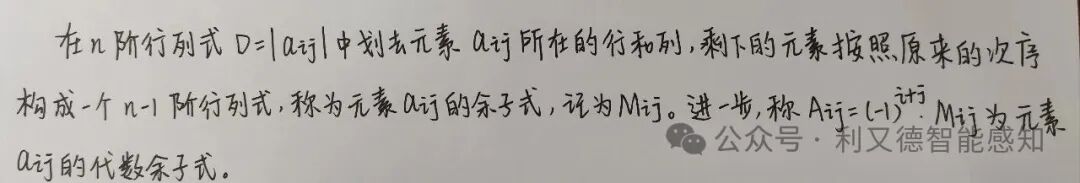 在n阶行列式 D=|aij|中划去元素 aij所在的行和列,剩下的元素按照原来的次序
构成一个 n-1 阶行列式,称为元素aij的余子式,记为Mij。进一步,称 Aij=(-1)^{i+j}·Mij为元素
aij的代数余子式。
公众号·利又德智能感知